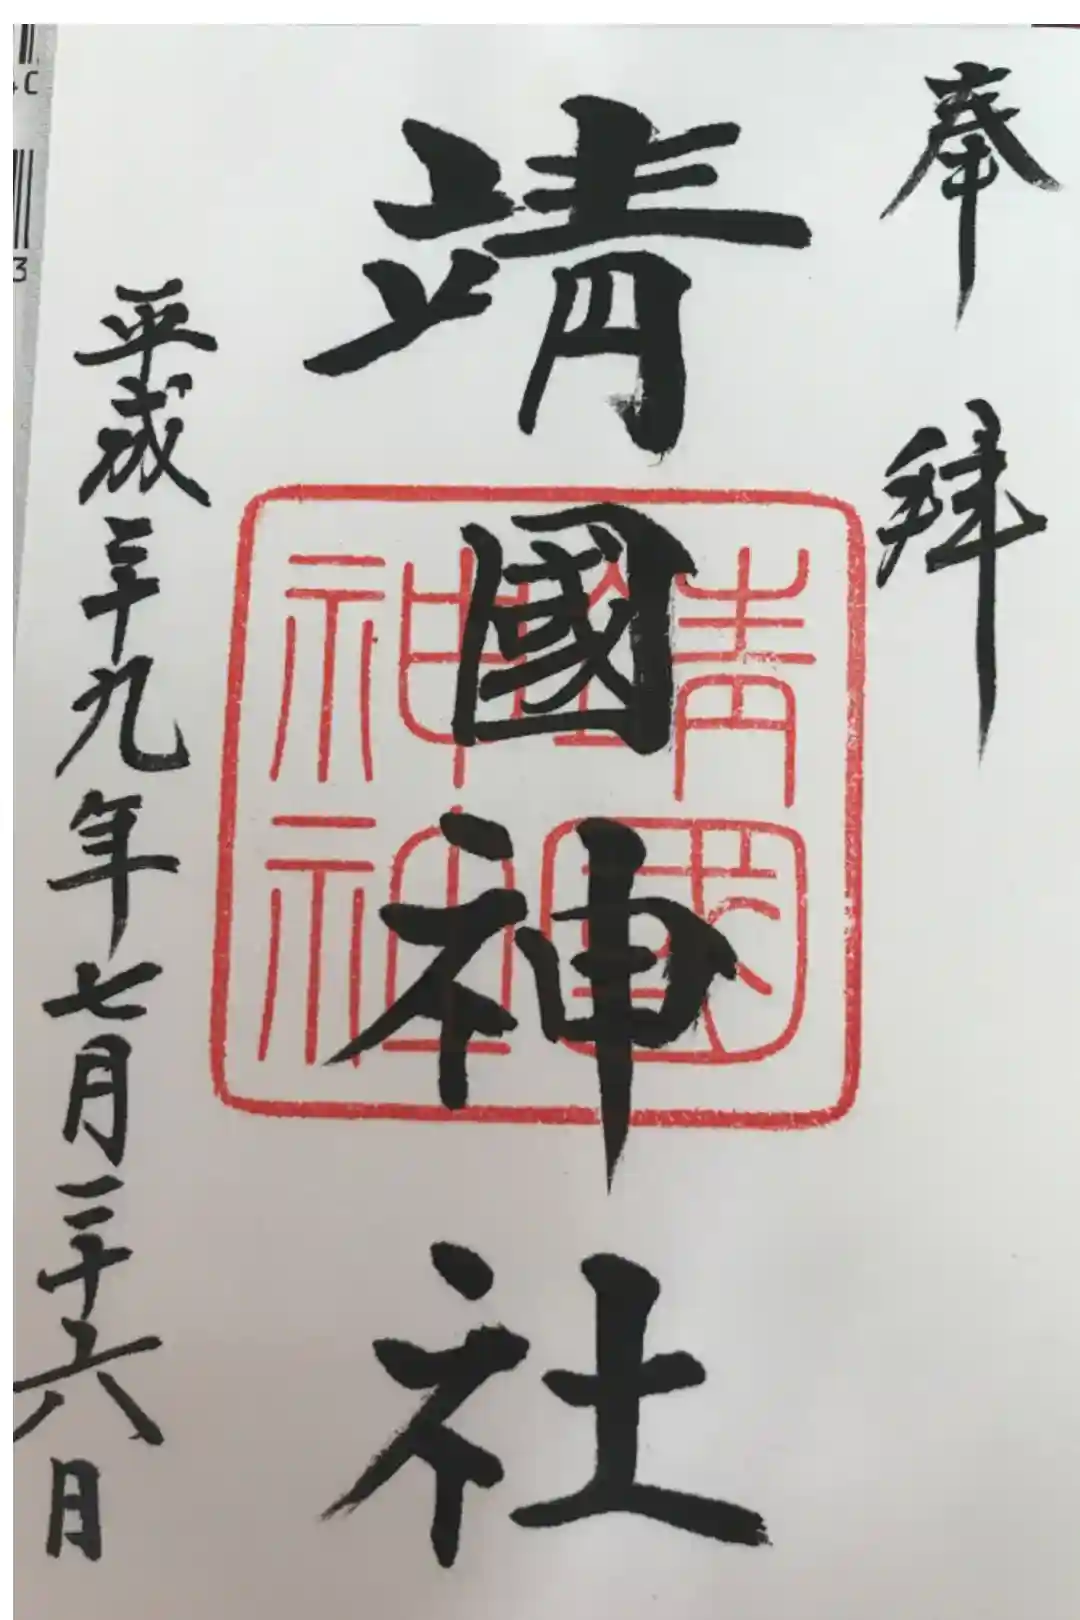 奉拝
靖國神社
靖國
神社
平成二十九年七月二十六日
C
3